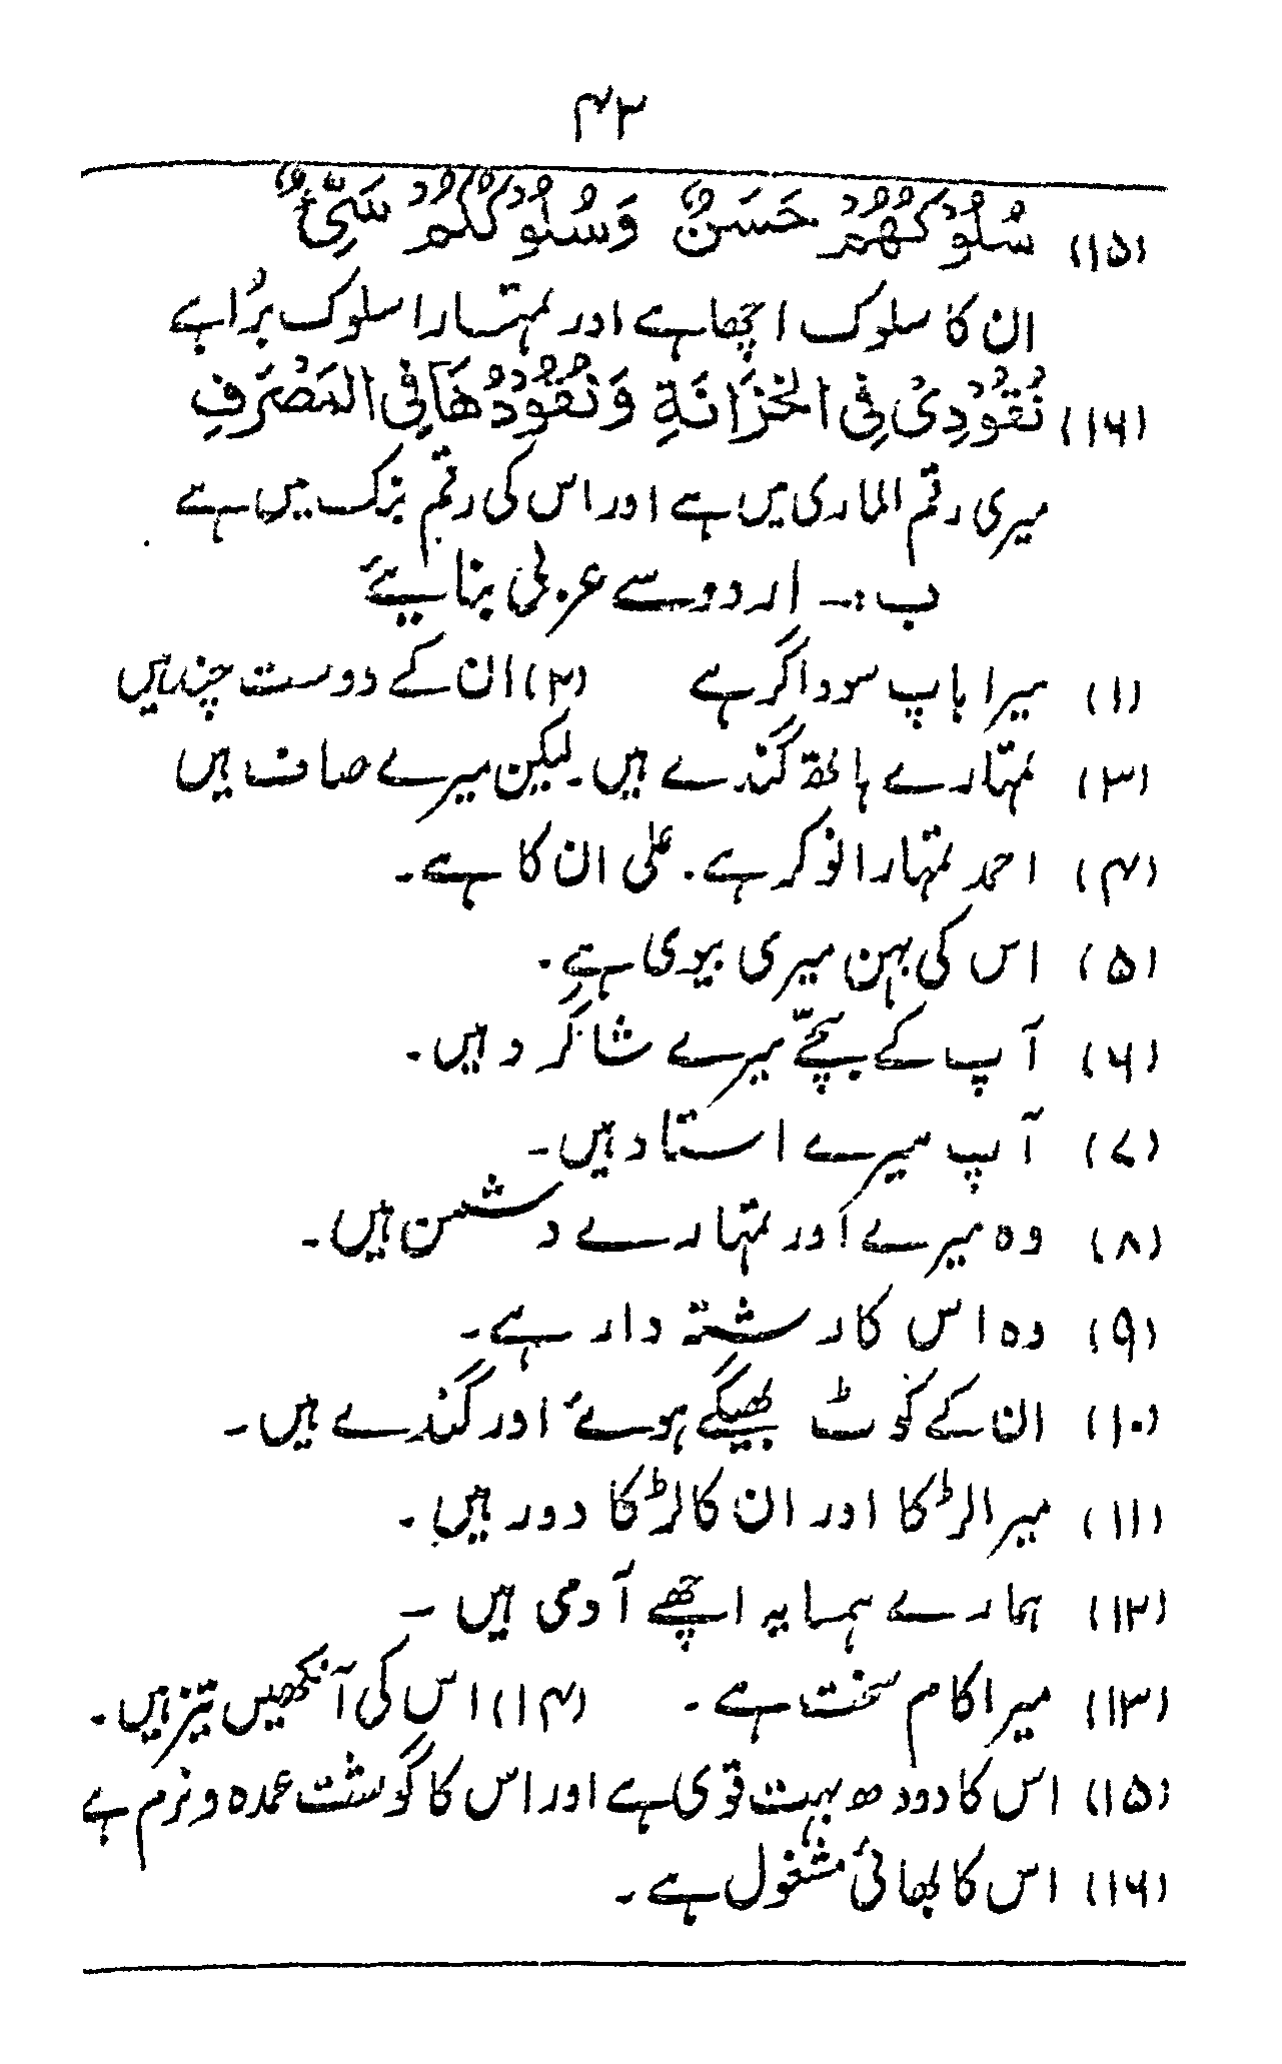 ۴۳
(۱۵) سُلُوْكُهُمْ حَسَنٌ وَسُلُوْكُكُمْ سَيِّئٌ
ان کا سلوک اچھا ہے اور تمہارا سلوک بُرا ہے
(۱۶) نُقُوْدِىْ فِى الْخَزَانَةِ وَنُقُوْدُهَا فِى الْمَصْرَفِ
میری رقم الماری میں ہے اور اس کی رقم بنک میں ہے
ب :۔ اردو سے عربی بنایئے
(۱) میرا باپ سوداگر ہے (۲) ان کے دوست چند ہیں
(۳) تمہارے ہاتھ گندے ہیں۔ لیکن میرے صاف ہیں
(۴) احمد تمہارا نوکر ہے۔ علی ان کا ہے۔
(۵) اس کی بہن میری بیوی ہے۔
(۶) آپ کے بچّے میرے شاگرد ہیں۔
(۷) آپ میرے استاد ہیں۔
(۸) وہ میرے اور تمہارے دشمن ہیں۔
(۹) وہ اس کا رشتہ دار ہے۔
(۱۰) ان کے کوٹ بھیگے ہوئے اور گندے ہیں۔
(۱۱) میرا لڑکا اور ان کا لڑکا دور ہیں۔
(۱۲) ہمارے ہمسایہ اچھے آدمی ہیں ۔
(۱۳) میرا کام سخت ہے۔ (۱۴) اس کی آنکھیں تیز ہیں۔
(۱۵) اس کا دودھ بہت قوی ہے اور اس کا گوشت عمدہ و نرم ہے
(۱۶) اس کا بھائی مشغول ہے۔